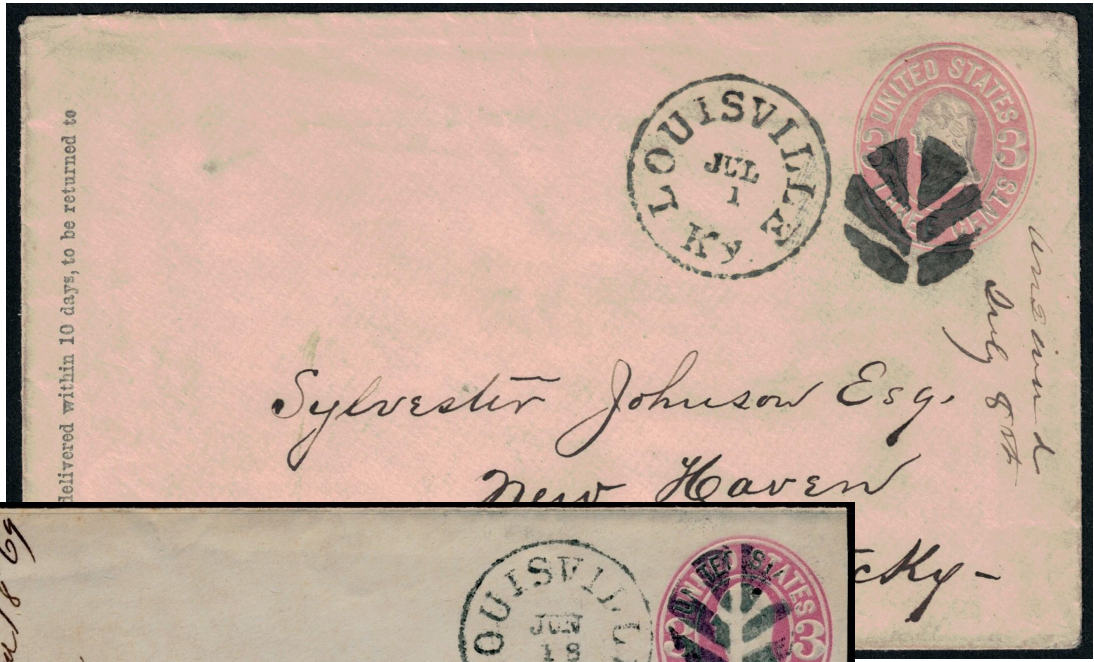 delivered within 10 days, to be returned to
LOUISVILLE
JUL
1
Ky
UNITED STATES
3
CENTS
Sylvester Johnson Esq.
New Haven
Ky-
July 8th
69
OUISVILL
JUN
18
UNITED STATES
3